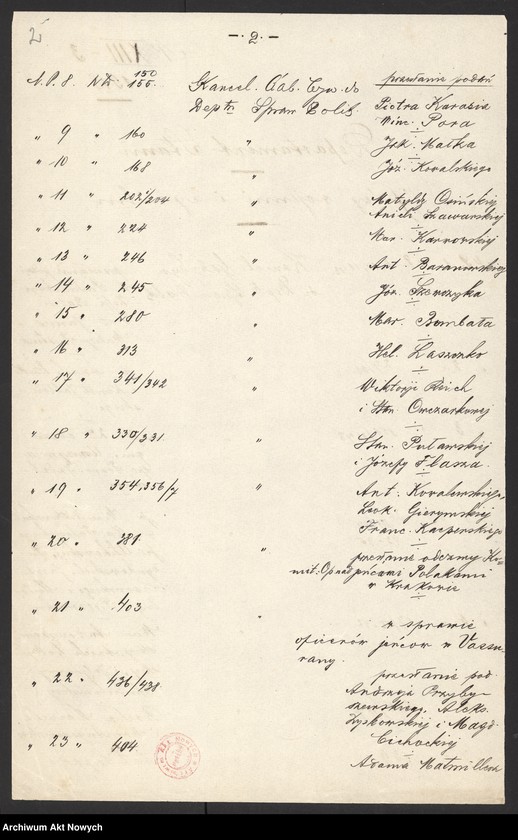 2
- 2 -
N. P. 8. Nr. 150/155. Kancel. Cyw. do przesłanie podań
Dept. Spraw Polit. Piotra Karasia
Winc. Pora
" 9 " 160 " Jak. Matka
" 10 " 168 " Józ. Kowalskiego
" 11 " 202/204 " Matyldy Osińskiej
Anieli
" 12 " 224 " Mar. Karnowskiej
" 13 " 246 " Ant. Baranowskiego
" 14 " 245 " Józ. Szewczyka
" 15 " 280 " Mar. Bombata
" 16 " 313 " Hel. Laszczko
" 17 " 341/342 " Wiktorji
i Stan. Owczarkowej
" 18 " 330/331 " Stan. Puławskiej
i Józefy Flasza.
" 19 " 354, 356/7 " Ant. Kowalewskiego,
Leok. Gierymskiej
Franc. Kacperskiego
" 20 " 381 " przesłanie odezwy Ko-
mit. Op. nad jeńcami Polakami
w Krakowie
" 21 " 403 " w sprawie
oficerów jeńców w Vassu-
rany.
" 22 " 436/438 przesłanie pod.
Andrzeja Przyby-
szewskiego, Aleks.
Łyskowskiej i Magd.
Cichockiej
" 23 " 404 Adama
Archiwum Akt Nowych